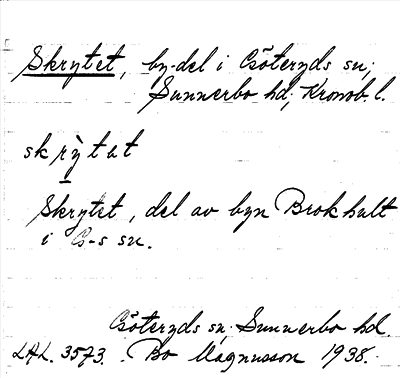 Skrytet, by-del i Göteryds sn;
Sunnerbo hd; Kronob. l.
skrỳtat
Skrytet, del av byn Brokhult
i G-s sn.
Göteryds sn; Sunnerbo hd.
LAL. 3573. Bo Magnusson 1938.